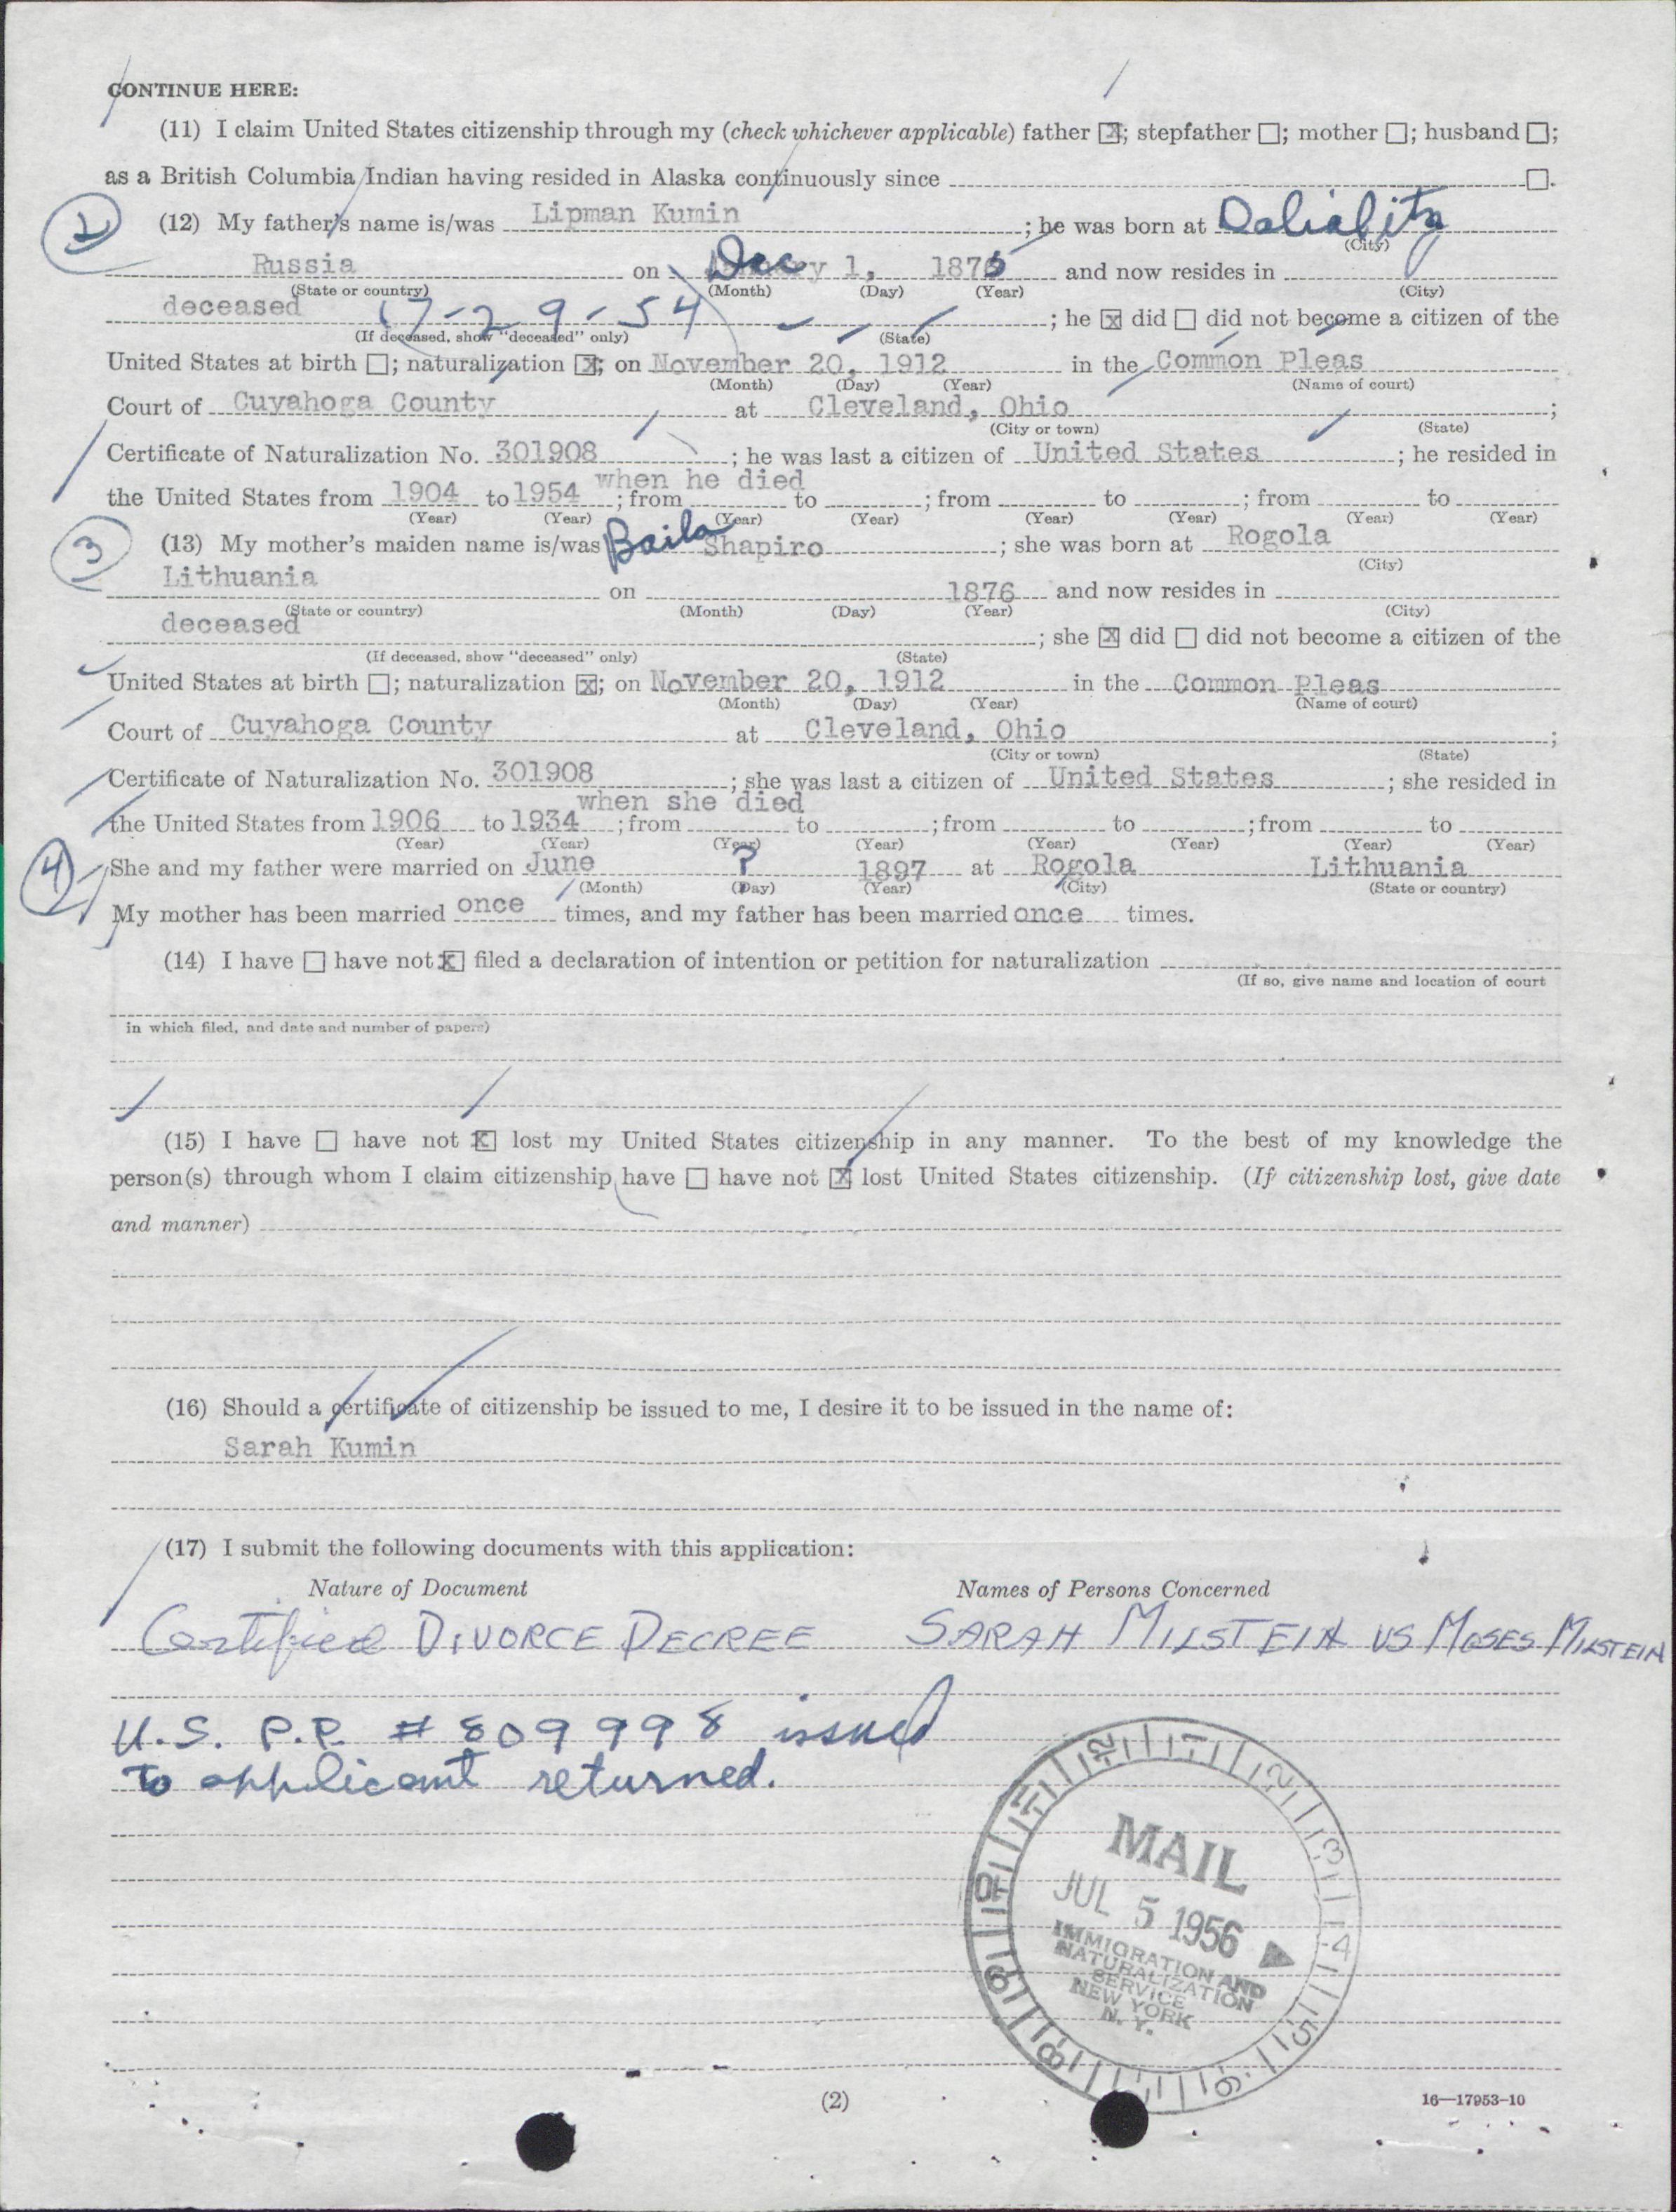 CONTINUE HERE:
(11) I claim United States citizenship through my (check whichever applicable) father ☒; stepfather ☐; mother ☐; husband ☐;
as a British Columbia Indian having resided in Alaska continuously since ☐.
2 (12) My father's name is/was Lipman Kumin ; he was born at
(City)
Russia on Dec 1, 1875 and now resides in
(State or country) (Month) (Day) (Year) (City)
deceased 7-29-54 ; he ☒ did ☐ did not become a citizen of the
(If deceased, show "deceased" only) (State)
United States at birth ☐; naturalization ☒; on November 20, 1912 in the Common Pleas
(Month) (Day) (Year) (Name of court)
Court of Cuyahoga County at Cleveland, Ohio ;
(City or town) (State)
Certificate of Naturalization No. 301908 ; he was last a citizen of United States ; he resided in
when he died
the United States from 1904 to 1954 ; from to ; from to ; from to
(Year) (Year) (Year) (Year) (Year) (Year) (Year) (Year)
3 (13) My mother's maiden name is/was Baila Shapiro ; she was born at Rogola
(City)
Lithuania on 1876 and now resides in
(State or country) (Month) (Day) (Year) (City)
deceased ; she ☒ did ☐ did not become a citizen of the
(If deceased, show "deceased" only) (State)
United States at birth ☐; naturalization ☒; on November 20, 1912 in the Common Pleas
(Month) (Day) (Year) (Name of court)
Court of Cuyahoga County at Cleveland, Ohio ;
(City or town) (State)
Certificate of Naturalization No. 301908 ; she was last a citizen of United States ; she resided in
when she died
the United States from 1906 to 1934 ; from to ; from to ; from to
(Year) (Year) (Year) (Year) (Year) (Year) (Year) (Year)
4 She and my father were married on June ? 1897 at Rogola Lithuania
(Month) (Day) (Year) (City) (State or country)
My mother has been married once times, and my father has been married once times.
(14) I have ☐ have not ☒ filed a declaration of intention or petition for naturalization
(If so, give name and location of court
in which filed, and date and number of papers)
(15) I have ☐ have not ☒ lost my United States citizenship in any manner. To the best of my knowledge the
person(s) through whom I claim citizenship have ☐ have not ☒ lost United States citizenship. (If citizenship lost, give date
and manner)
(16) Should a certificate of citizenship be issued to me, I desire it to be issued in the name of:
Sarah Kumin
(17) I submit the following documents with this application:
Nature of Document Names of Persons Concerned
Certified DIVORCE DECREE SARAH MILSTEIN VS MOSES MILSTEIN
U.S. P.P. # 809998 issued
to applicant returned.
MAIL
JUL 5 1956
IMMIGRATION AND
NATURALIZATION
SERVICE
NEW YORK
N. Y.
12 1 2 3 4 5 6 8 9 10 11
(2)
16—17953-10